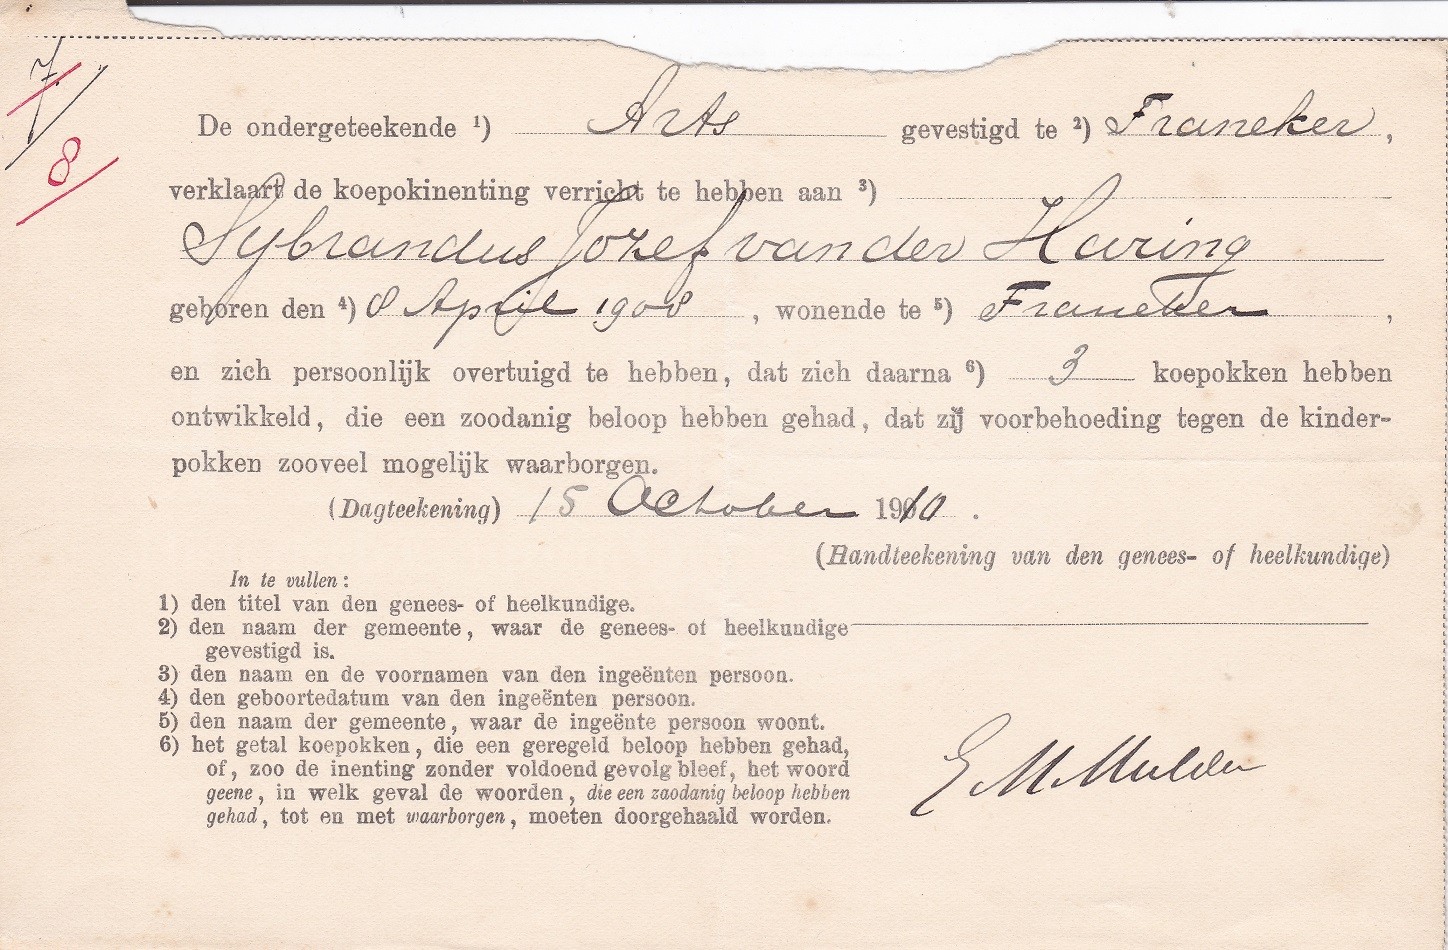 7
8
De ondergeteekende ¹) Arts gevestigd te ²) Franeker,
verklaart de koepokinenting verricht te hebben aan ³)
Sybrandus Jozef van der Haring
geboren den ⁴) 8 April 1908, wonende te ⁵) Franeker,
en zich persoonlijk overtuigd te hebben, dat zich daarna ⁶) 3 koepokken hebben
ontwikkeld, die een zoodanig beloop hebben gehad, dat zij voorbehoeding tegen de kinder-
pokken zooveel mogelijk waarborgen.
(Dagteekening) 15 October 1910.
(Handteekening van den genees- of heelkundige)
In te vullen:
1) den titel van den genees- of heelkundige.
2) den naam der gemeente, waar de genees- of heelkundige
gevestigd is.
3) den naam en de voornamen van den ingeënten persoon.
4) den geboortedatum van den ingeënten persoon.
5) den naam der gemeente, waar de ingeënte persoon woont.
6) het getal koepokken, die een geregeld beloop hebben gehad,
of, zoo de inenting zonder voldoend gevolg bleef, het woord
geene, in welk geval de woorden, die een zaodanig beloop hebben
gehad, tot en met waarborgen, moeten doorgehaald worden.
E M Mulder